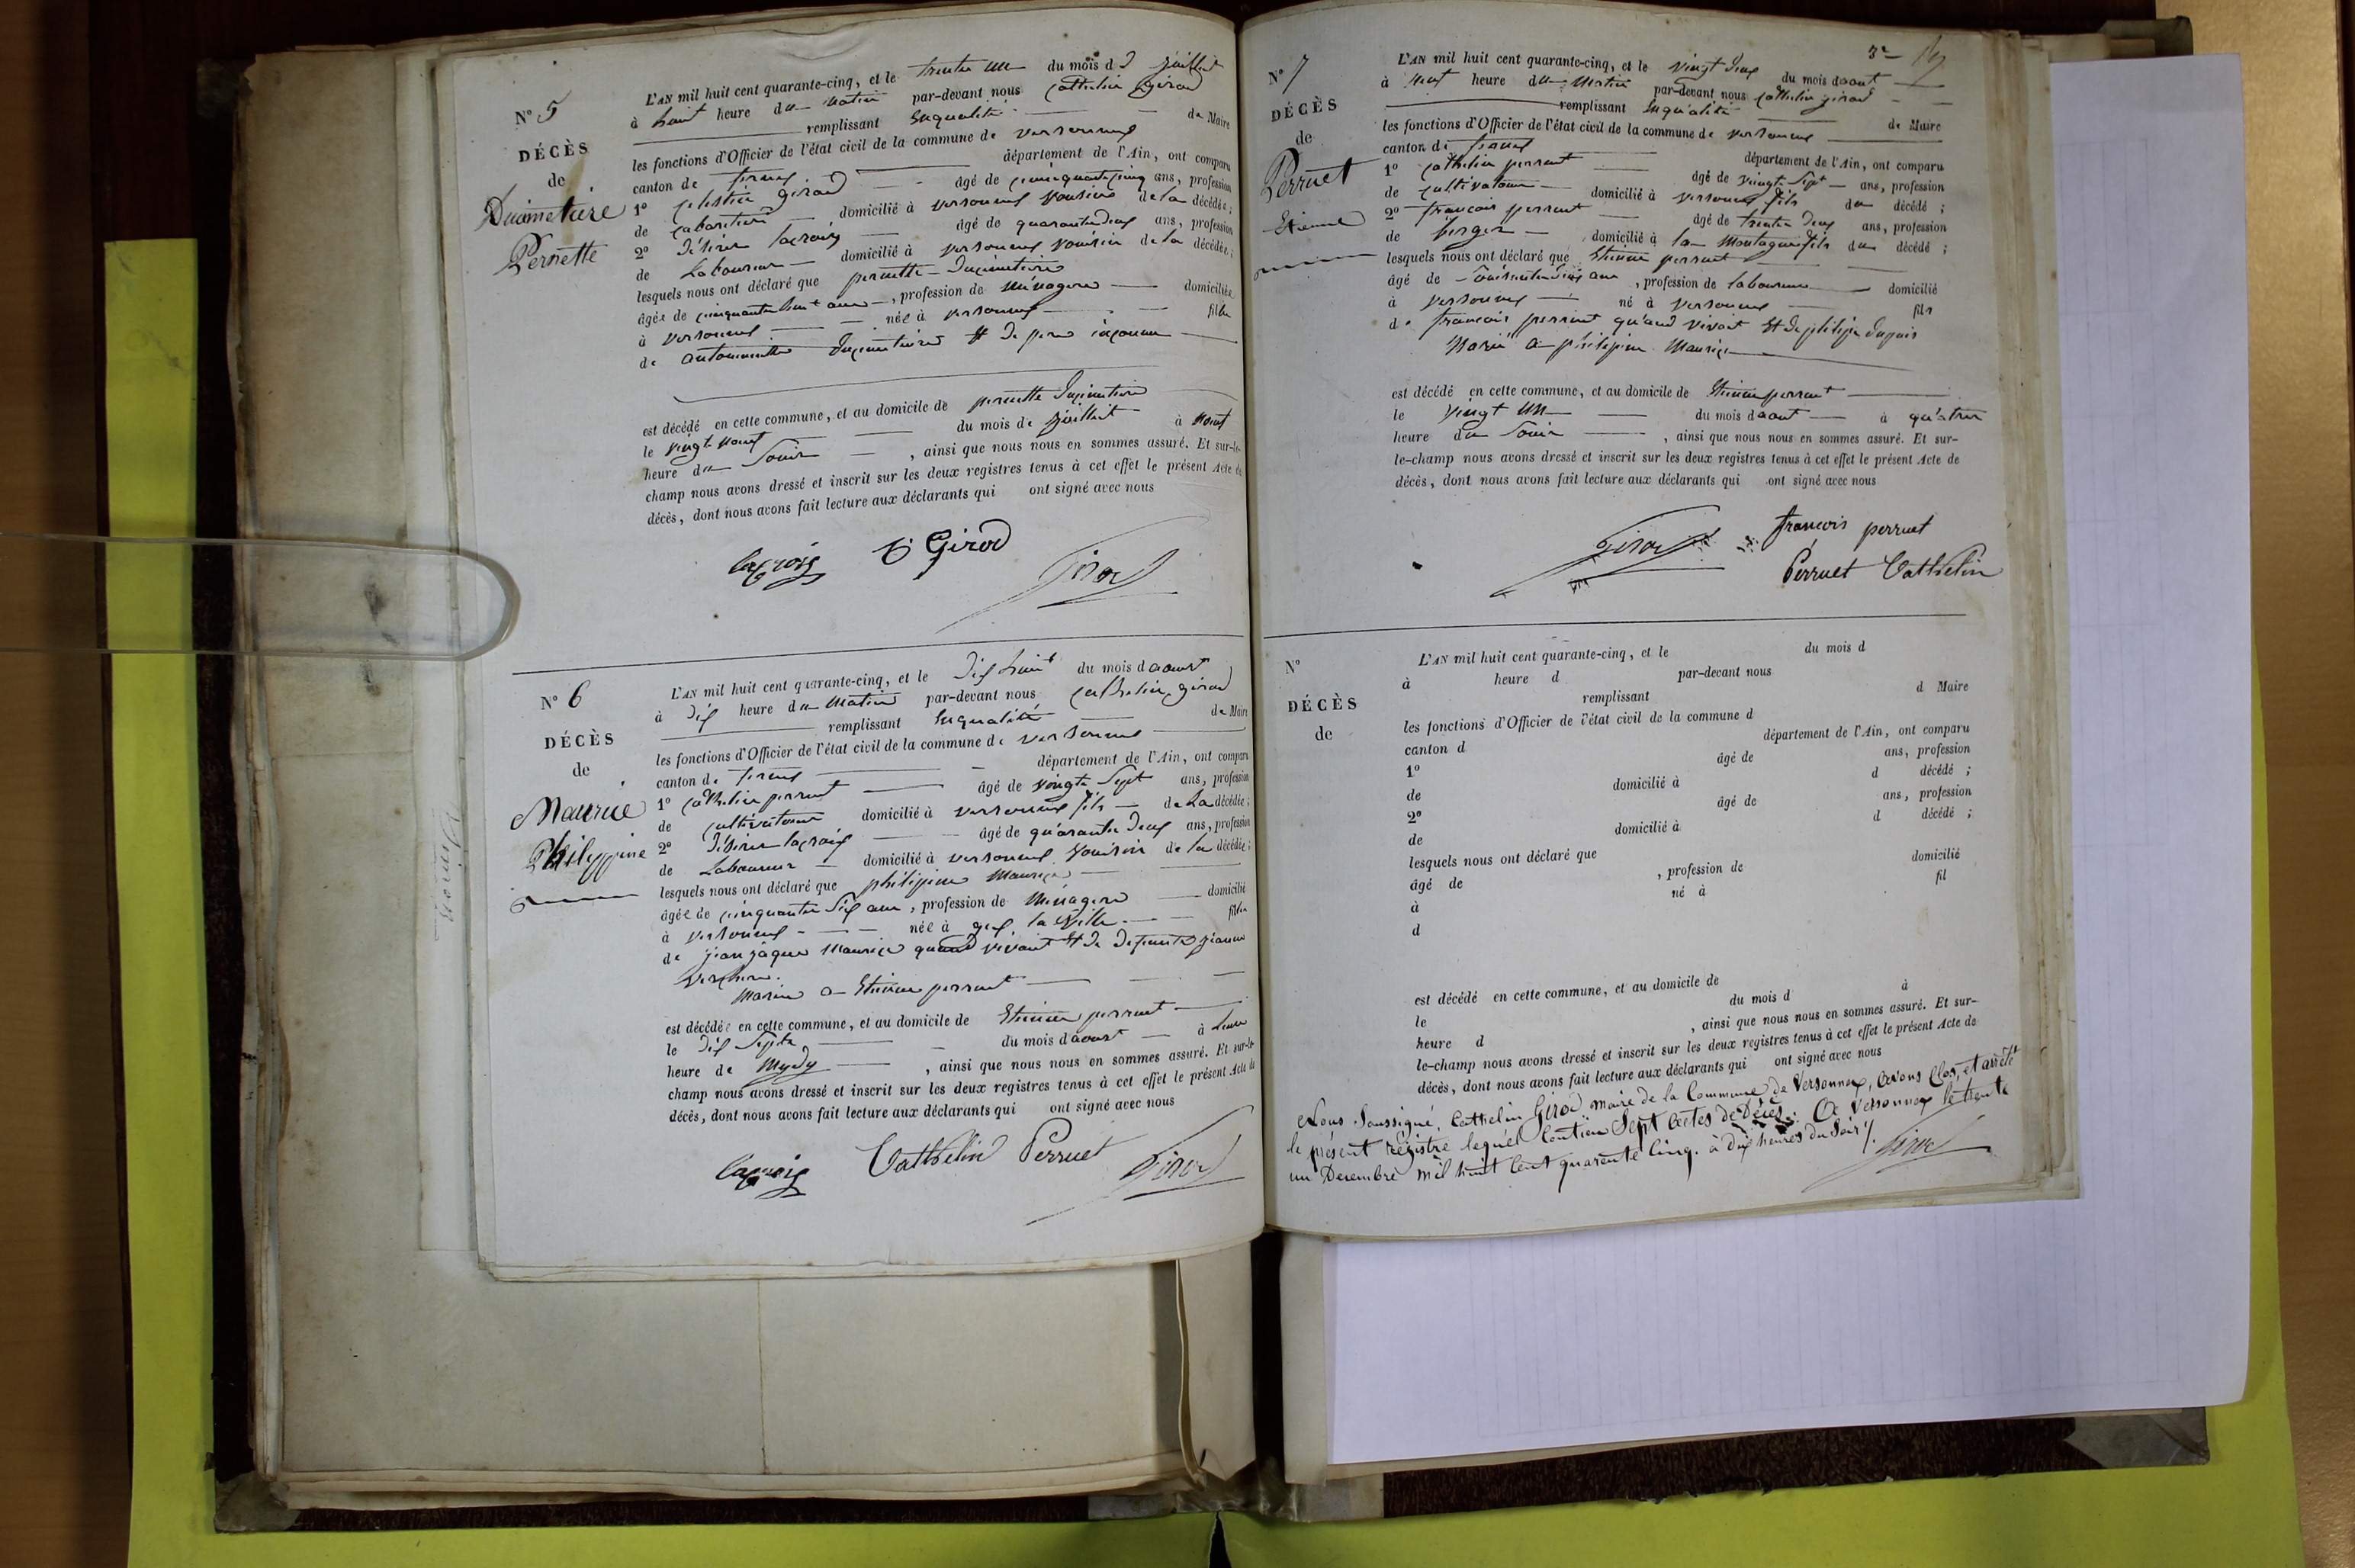 N° 5
DÉCÈS
de
Ducimetière
Pernette
L'AN mil huit cent quarante-cinq, et le trente un du mois d juillet
à huit heure du matin par-devant nous Cathelin girod
remplissant enqualité de Maire
les fonctions d'Officier de l'état civil de la commune de versonnex
canton de ferney département de l'Ain, ont comparu
1° celestin girod âgé de cinquante cinq ans, profession
de cabaretier domicilié à versonnex vouisin de la décédée;
2° désirer lacroix âgé de quarante deux ans, profession
de Laboureur domicilié à versonnex vouisin de la décédée;
lesquels nous ont déclaré que pernette ducimetière
âgée de cinquante huit ans, profession de ménagere domiciliée
à versonnex née à versonnex fille
de ducimetière et de
est décédé en cette commune, et au domicile de pernette ducimetière
le vingt nouf du mois de juillet à nouf
heure du souir, ainsi que nous nous en sommes assuré. Et sur-le-
champ nous avons dressé et inscrit sur les deux registres tenus à cet effet le présent Acte de
décès, dont nous avons fait lecture aux déclarants qui ont signé avec nous
lacroix C Girod Girod
N° 6
DÉCÈS
de
Maurice
Philippine
L'AN mil huit cent quarante-cinq, et le dix huit du mois d aoust
à dix heure du matin par-devant nous Cathelin girod
remplissant enqualité de Maire
les fonctions d'Officier de l'état civil de la commune de versonnex
canton de ferney département de l'Ain, ont comparu
1° Cathelin perruet âgé de vingte sept ans, profession
de cultivateur domicilié à versonnex fils de La décédée;
2° désirer lacroix âgé de quarante deux ans, profession
de Laboureur domicilié à versonnex vouisin de la décédée;
lesquels nous ont déclaré que philipine Maurice
âgée de cinquante six ans, profession de Ménagere domicilié
à versonnex née à gex la ville fille
de jean jaque Maurice quand vivait et de defunte jeanne
Marié a Etienne perruet
est décédée en cette commune, et au domicile de Etienne perruet
le dix septe du mois d aoust à
heure de mydy, ainsi que nous nous en sommes assuré. Et sur-le-
champ nous avons dressé et inscrit sur les deux registres tenus à cet effet le présent Acte de
décès, dont nous avons fait lecture aux déclarants qui ont signé avec nous
lacroix Cathelin Perruet Girod
N° 7
DÉCÈS
de
Perruet
Etienne
L'AN mil huit cent quarante-cinq, et le vingt deux du mois d aout
à neuf heure du matin par-devant nous Cathelin girod
remplissant enqualité de Maire
les fonctions d'Officier de l'état civil de la commune de versonnex
canton de ferney département de l'Ain, ont comparu
1° Cathelin perruet âgé de vingte sept ans, profession
de cultivateur domicilié à versonnex fils du décédé;
2° francois perruet âgé de trente deux ans, profession
de berger domicilié à la Montagne fils du décédé;
lesquels nous ont déclaré que Etienne perruet
âgé de ans, profession de laboureur domicilié
à versonnex né à versonnex fils
de francois perruet quand vivait et de dupuis
Marié a philipine Maurice
est décédé en cette commune, et au domicile de Etienne perruet
le vingt un du mois d aout à quatre
heure du souir, ainsi que nous nous en sommes assuré. Et sur-
le-champ nous avons dressé et inscrit sur les deux registres tenus à cet effet le présent Acte de
décès, dont nous avons fait lecture aux déclarants qui ont signé avec nous
Girod francois perruet
Perruet Cathelin
N°
DÉCÈS
de
L'AN mil huit cent quarante-cinq, et le du mois d
à heure d par-devant nous
remplissant d Maire
les fonctions d'Officier de l'état civil de la commune d
canton d département de l'Ain, ont comparu
1° âgé de ans, profession
de domicilié à d décédé;
2° âgé de ans, profession
de domicilié à d décédé;
lesquels nous ont déclaré que
âgé de, profession de domicilié
à né à fil
d
est décédé en cette commune, et au domicile de
le du mois d à
heure d, ainsi que nous nous en sommes assuré. Et sur-
le-champ nous avons dressé et inscrit sur les deux registres tenus à cet effet le présent Acte de
décès, dont nous avons fait lecture aux déclarants qui ont signé avec nous
Nous Soussigné, Cathelin Girod maire de la Commune de Versonnex, avons Clos, et arrêté
le présent régistre lequel Contien Sept actes de Décès. A Versonnex le trente
un Décembre mil huit cent quarente Cinq. à dix heures du Soir
Girod